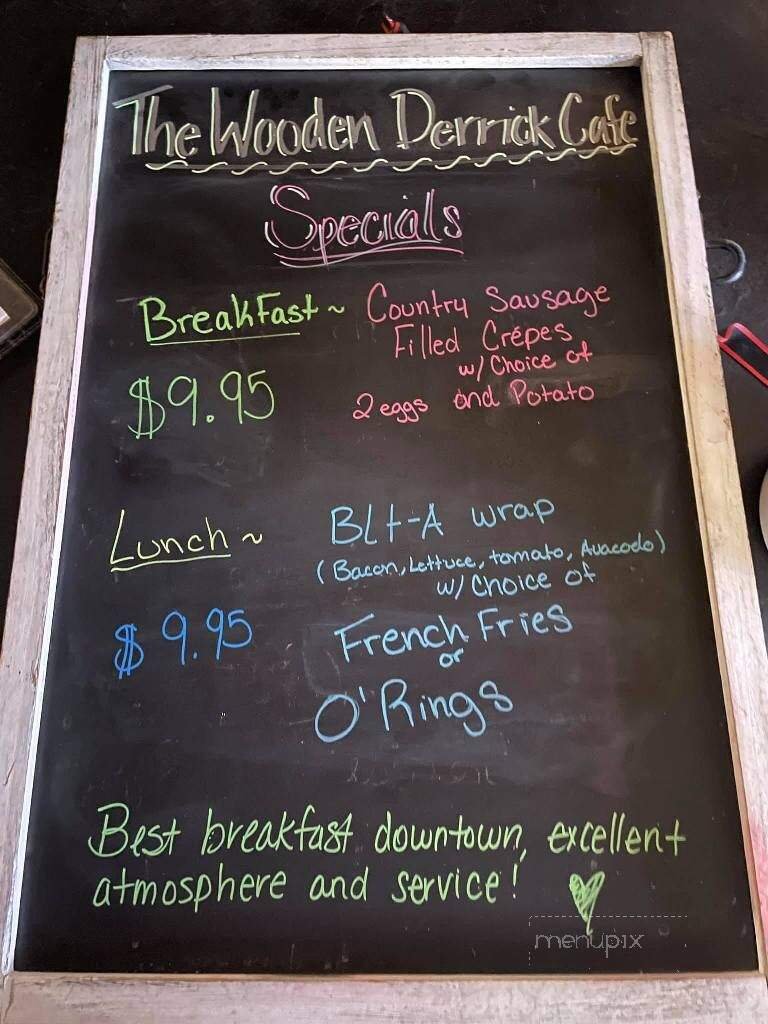 The Wooden Derrick Cafe
Specials
Breakfast ~ Country Sausage
Filled Crêpes
w/ Choice of
$9.95 2 eggs and Potato
Lunch ~ BLt-A wrap
(Bacon, Lettuce, tomato, Avacodo)
w/ Choice of
$9.95 French Fries
or
O'Rings
Best breakfast downtown, excellent
atmosphere and service!
menupix